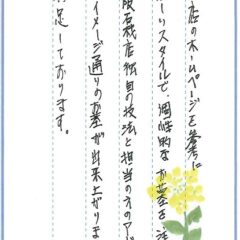 店のホームページを参考に
いスタイルで、個性的なお墓を注
阪石裁店独自の技法と担当の方のアド
イメージ通りのお墓が出来上がりま
満足しております。